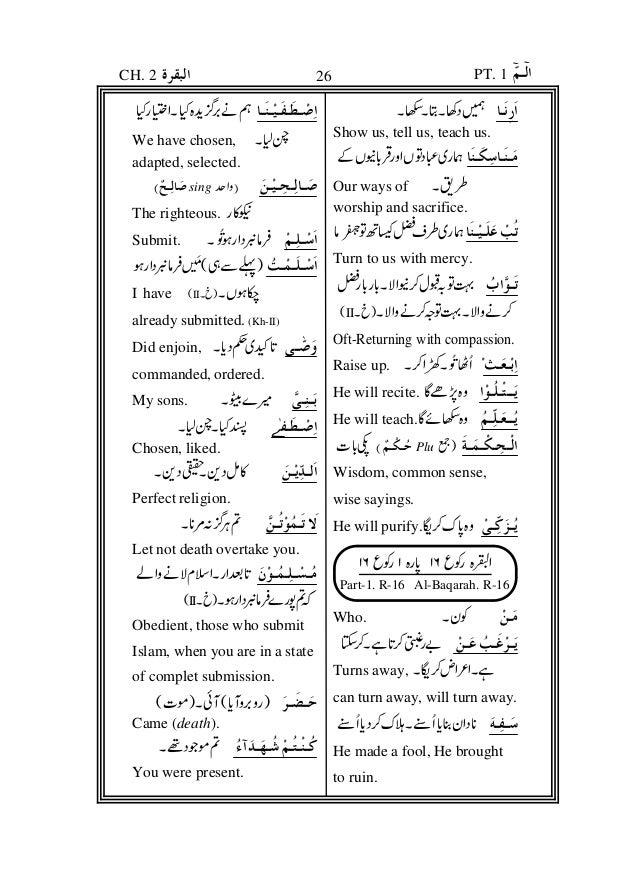 CH. 2 البقرة 26 PT. 1 الٓمّٓ
اَرِنَا ہمیں دکھا۔بتا۔سکھا۔
Show us, tell us, teach us.
مَنَاسِكَنَا ہماری عبادتوں اور قربانیوں کے
Our ways of طریق۔
worship and sacrifice.
تُبْ عَلَيْنَا ہماری طرف فضل کیساتھ توجہ فرما
Turn to us with mercy.
تَوَّابُ بہت توبہ قبول کرنیوالا۔بار بار فضل
کرنے والا۔بہت توجہ کرنے والا۔(خ۔II)
Oft-Returning with compassion.
Raise up. اِبْعَثْ اُٹھا تُو۔کھڑا کر۔
He will recite. يَتْلُوْا وہ پڑھے گا
He will teach. يُعَلِّمُ وہ سکھائے گا۔
اَلْحِكْمَةَ (جمع Plu حُكْمُ) پکی بات
Wisdom, common sense,
wise sayings.
He will purify. يُزَكِّىْ وہ پاک کریگا۔
البقرہ رکوع ۱۶ پارہ ۱ رکوع ۱۶
Part-1. R-16 Al-Baqarah. R-16
Who. مَنْ کون۔
يَرْغَبُ عَنْ بے رغبتی کرتا ہے۔کر سکتا
Turns away, ہے۔اعراض کریگا۔
can turn away, will turn away.
سَفِهَ نادان بنایا اُسنے۔ہلاک کر دیا اُسنے
He made a fool, He brought
to ruin.
اِصْطَفَيْنَا ہم نے برگزیدہ کیا۔اختیار کیا
We have chosen, چن لیا۔
adapted, selected.
صَالِحِيْنَ (واحد sing صَالِحٌ)
The righteous. نیکوکار
Submit. اَسْلِمْ فرمانبردار ہو تُو۔
اَسْلَمْتُ (پہلے سے ہی) مَیں فرمانبردار ہو
I have چکا ہوں۔(خ۔II)
already submitted. (Kh-II)
Did enjoin, وَصّٰى تاکیدی حکم دیا۔
commanded, ordered.
My sons. بَنِىَّ میرے بیٹو۔
اِصْطَفٰے پسند کیا۔چن لیا۔
Chosen, liked.
اَلدِّيْنَ کامل دین۔حقیقی دین۔
Perfect religion.
لَا تَمُوْتُنَّ تم ہرگز نہ مرنا۔
Let not death overtake you.
مُسْلِمُوْنَ تابعدار۔اسلام لانے والے
کہ تم پورے فرمانبردار ہو۔(خ۔II)
Obedient, those who submit
Islam, when you are in a state
of complet submission.
حَضَرَ (روبرو آیا) آئی۔(موت)
Came (death).
كُنْتُمْ شُهَدَآءُ تم موجود تھے۔
You were present.